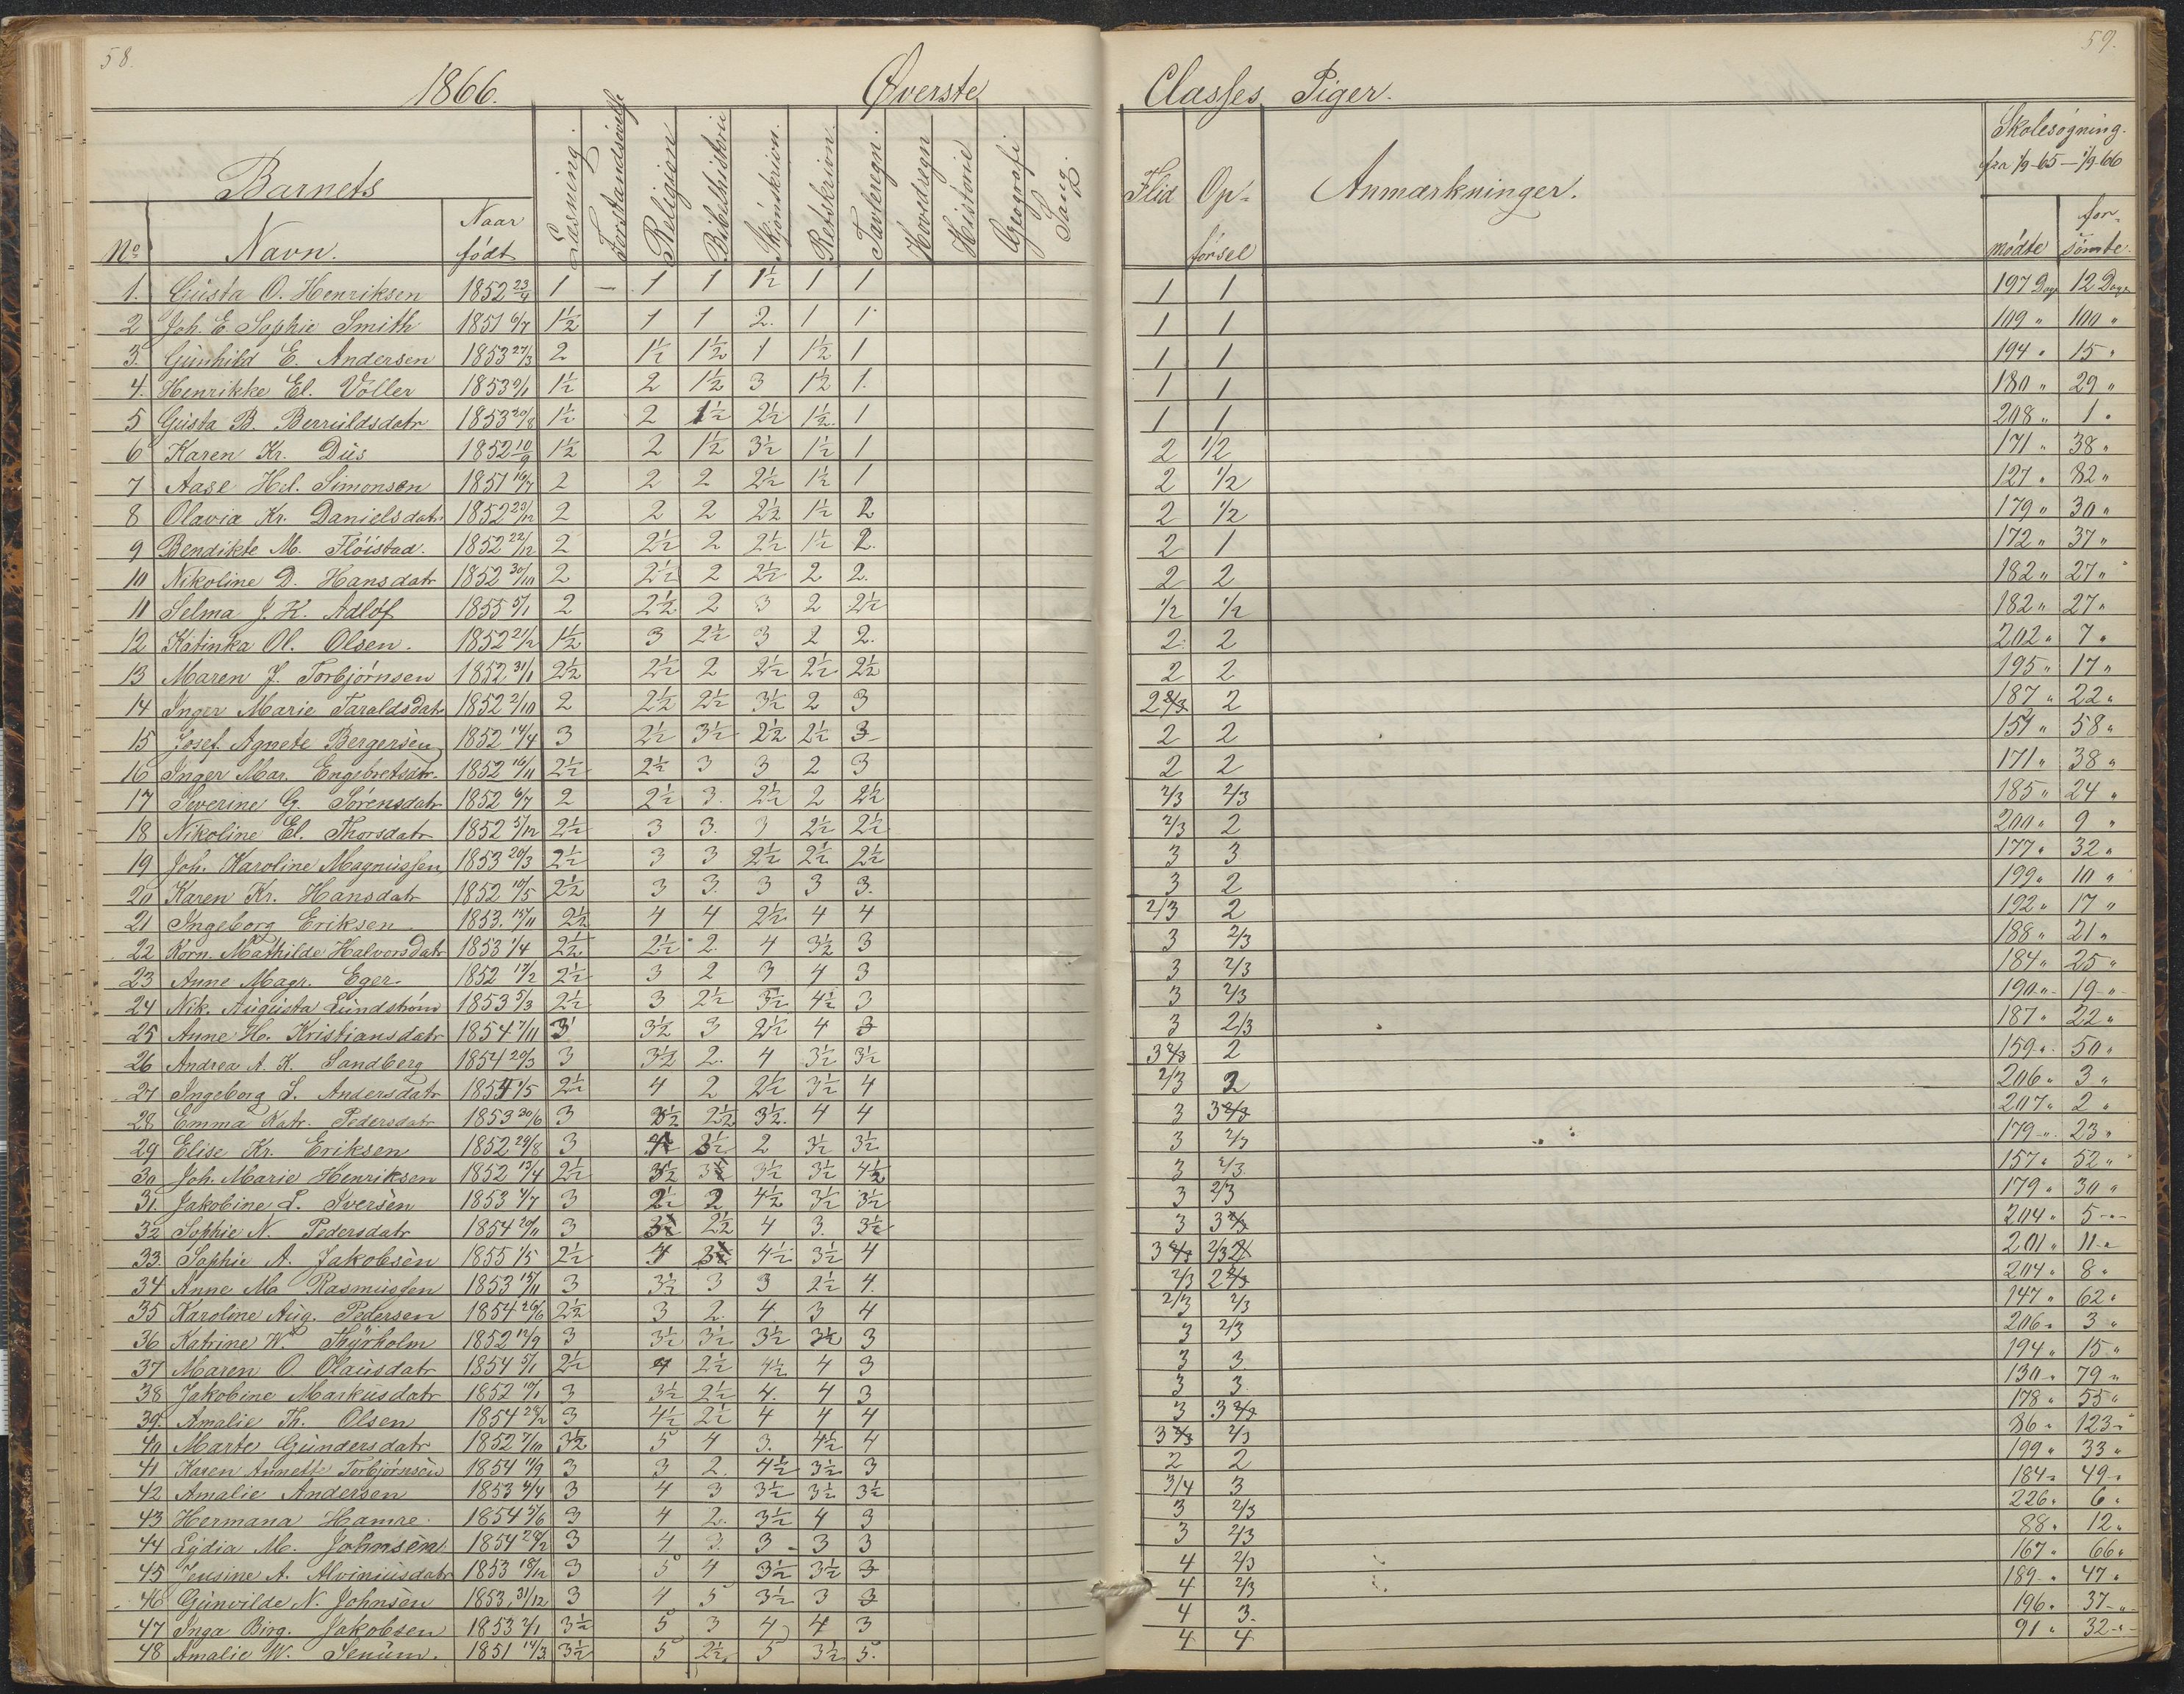 58.
59.
1866. Øverste Classes Piger.
Barnets
No Navn. Naar født Læsning. Forstandsøvelse Religion Bibelhistorie Skjønskrivn. Retskrivn. Tavleregn. Hovedregn Historie Geografi Sang. Flid Opførsel Anmærkninger. Skolesøgning. fra 1/9-65 — 1/9-66 mødte forsømte.
1. Gusta O. Henriksen 1852 23/4 1 — 1 1 1½ 1 1 1 1 197 Dage 12 Dage
2 Joh. E. Sophie Smith 1851 6/7 1½ 1 1 2. 1 1 1 1 109 " 100 "
3. Gunhild E. Andersen 1853 27/3 2 1½ 1½ 1 1½ 1 1 1 194 " 15 "
4. Henrikke El. Voller 1853 1½ 2 1½ 3 1½ 1. 1 1 180 " 29 "
5 Gusta B. Berruldsdatr 1853 20/8 1½ 2 1½ 2½ 1½ 1 1 1 208 " 1 "
6 Karen Kr. Dus 1852 10/9 1½ 2 1½ 3½ 1½ 1 2 1/2 171 " 38 "
7 Aase Hel. Simonsen 1851 16/7 2 2 2 2½ 1½ 1 2 1/2 127 " 82 "
8 Olavia Kr. Danielsdatr 1852 23/12 2 2 2 2½ 1½ 2 2 1/2 179 " 30 "
9 Bendikte M. Fløistad. 1852 22/12 2 2½ 2 2½ 1½ 2. 2 1 172 " 37 "
10 Nikoline D. Hansdatr 1852 30/10 2 2½ 2 2½ 2 2. 2 2 182 " 27 "
11 Selma J. K. Adlof 1855 5/1 2 2½ 2 3 2 2½ 1/2 1/2 182 " 27 "
12 Katinka Ol. Olsen. 1852 21/12 1½ 3 2½ 3 2 2. 2 2 202 " 7 "
13 Maren J. Torbjørnsen 1852 31/1 2½ 2½ 2 2½ 2½ 2½ 2 2 195 " 17 "
14 Inger Marie Taraldsdatr 1852 2/10 2 2½ 2½ 3½ 2 3 2 2/3 2 187 " 22 "
15 Josef. Agnete Bergersen 1852 14/4 3 2½ 3½ 2½ 2½ 3 2 2 58 "
16 Inger Mar. Engebretsdtr. 1852 16/11 2½ 2½ 3 3 2 3 2 2 171 " 38 "
17 Severine G. Sørensdatr 1852 6/7 2 2½ 3. 2½ 2 2½ 2/3 2/3 185 " 24 "
18 Nikoline El. Thorsdatr 1852 5/12 2½ 3 3. 3 2½ 2½ 2/3 2 200 " 9 "
19 Joh. Karoline Magnussen 1853 20/3 2½ 3 3 2½ 2½ 2½ 3 3 177 " 32 "
20 Karen Kr. Hansdatr 1852 10/5 2½ 3 3. 3 3 3. 3 2 199 " 10 "
21 Ingeborg Eriksen 1853. 13/11 2½ 4 4 2½ 4 4 2/3 2 192 " 17 "
22 Korn. Mathilde Halvorsdatr 1853 1/4 2½ 2½ 2. 4 3½ 3 3 2/3 188 " 21 "
23 Anne Magr. Eger. 1852 17/2 2½ 3 2 3 4 3 3 2/3 184 " 25 "
24 Nik. Augusta Lundstrøm 1853 5/3 2½ 3 2½ 3½ 4½ 3 3 2/3 190 " 19 "
25 Anne H. Kristiansdatr 1854 7/11 3 3½ 3 2½ 4 3 3 2/3 187 " 22 "
26 Andrea A. K. Sandberg 1854 20/3 3 3½ 2. 4 3½ 3½ 3 2/3 2 159 " 50 "
27 Ingeborg S. Andersdatr 1854 1/5 2½ 4 2 2½ 3½ 4 2/3 2 206 " 3 "
28 Emma Katr. Pedersdatr 1853 30/6 3 2½ 3½ 4 4 3 3 2/3 207 " 2 "
29 Elise Kr. Eriksen 1852 29/8 3 3½ 2 3½ 3½ 3 2/3 179 " 23 "
30 Joh. Marie Henriksen 1852 13/4 2½ 3½ 3½ 3½ 3½ 4½ 3 2/3 157 " 52 "
31. Jakobine L. Iversen 1853 4/7 3 2½ 2 4½ 3½ 3½ 3 2/3 179 " 30 "
32 Sophie N. Pedersdatr 1854 20/11 3 2½ 4 3. 3½ 3 3 2/3 204 " 5 "
33. Sophie A. Jakobsen 1855 1/5 2½ 4 4½ 3½ 4 3 2/3 201 " 11 "
34 Anne M. Rasmussen 1853 15/11 3 3½ 3 3 2½ 4. 2/3 2 2/3 204 " 8 "
35 Karoline Aug. Pedersen 1854 26/6 2½ 3 2. 4 3 4 2/3 2/3 147 " 62 "
36 Katrine W. Thyrholm 1852 12/9 3 3½ 3½ 3½ 3½ 3 3 2/3 206 " 3 "
37 Maren O. Olausdatr 1854 5/1 2½ 4 2½ 4½ 4 3 3 3. 194 " 15 "
38 Jakobine Markusdatr 1852 17/1 3 3½ 2½ 4. 4 3 3 3. 130 " 79 "
39. Amalie Th. Olsen 1854 28/2 3 4½ 2½ 4 4 4 3 3 2/3 178 " 55 "
40 Marte Gundersdatr 1852 7/10 3½ 5 4 3. 4½ 4 3 2/3 2/3 86 " 123 "
41 Karen Annette Torbjørnsen 1854 11/9 3 3 2. 4½ 3½ 3 2 2 199 " 33 "
42 Amalie Andersen 1853 4/4 3 4 3 3½ 3½ 3½ 3/4 3 184 " 49 "
43 Hermana Hamre 1854 5/6 3 4 2. 3½ 4 3 3 2/3 226 " 6 "
44 Lydia M. Johnsen 1854 28/2 3 4 3. 3 3 3 3 2/3 88 " 12 "
45 Jensine A. Alviniusdatr 1853 18/12 3 5 4 3½ 3½ 3 4 2/3 167 " 66 "
46 Gunvilde N. Johnsen 1853. 31/12 3 4 5 3½ 3 3 4 2/3 189 " 47 "
47 Inga Birg. Jakobsen 1853 2/1 3½ 5 3 4 4 3 4 3. 196 " 37 "
48 Amalie W. Senum. 1851 14/3 3½ 5 2½ 5 3½ 5. 4 4 91 " 32 "